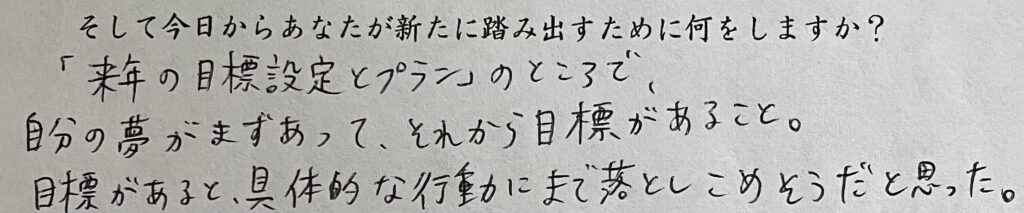 そして今日からあなたが新たに踏み出すために何をしますか？
「来年の目標設定とプラン」のところで、
自分の夢がまずあって、それから目標があること。
目標があると、具体的な行動にまで落としこめそうだと思った。